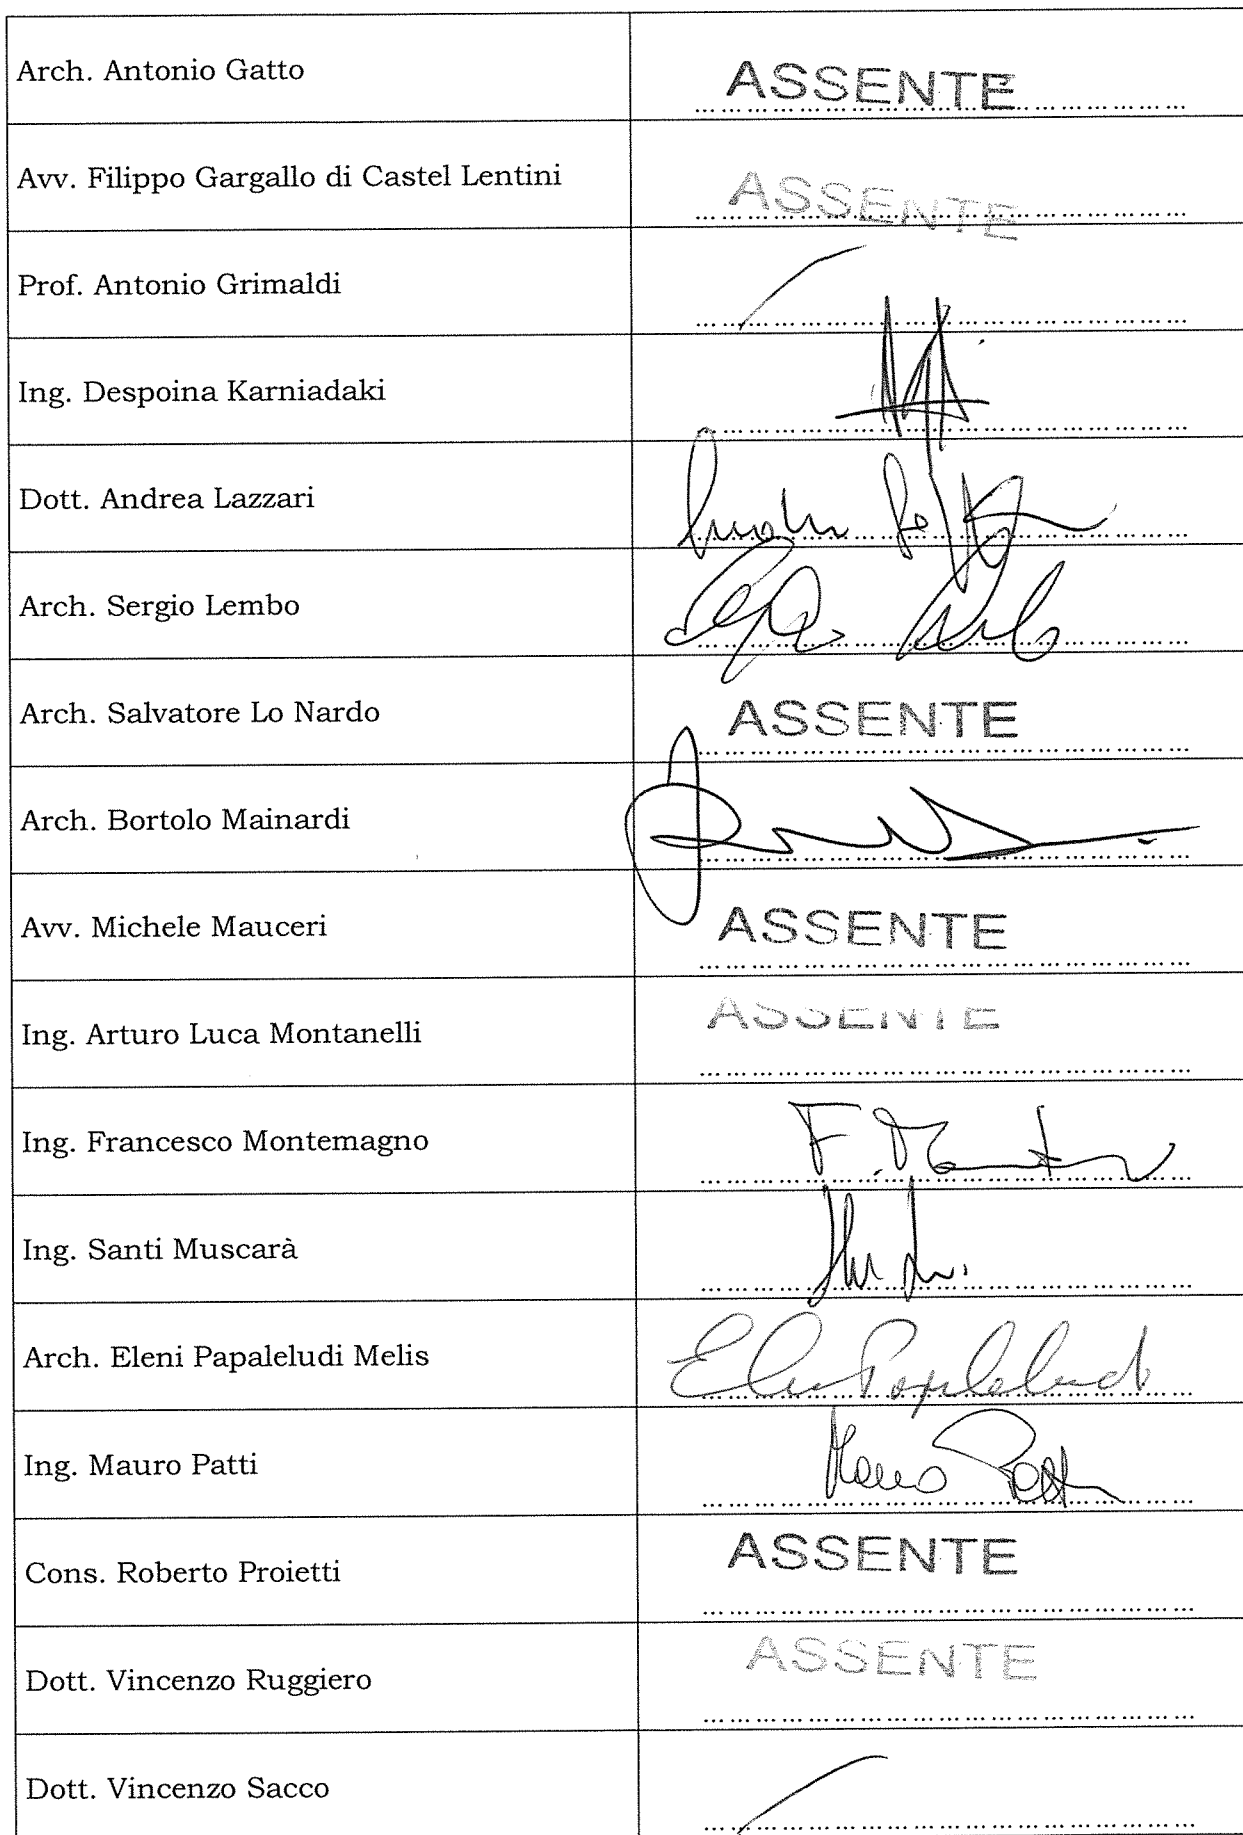 Arch. Antonio Gatto
ASSENTE
Avv. Filippo Gargallo di Castel Lentini
ASSENTE
Prof. Antonio Grimaldi
Ing. Despoina Karniadaki
Dott. Andrea Lazzari
Arch. Sergio Lembo
Arch. Salvatore Lo Nardo
ASSENTE
Arch. Bortolo Mainardi
Avv. Michele Mauceri
ASSENTE
Ing. Arturo Luca Montanelli
ASSENTE
Ing. Francesco Montemagno
Ing. Santi Muscarà
Arch. Eleni Papaleludi Melis
Ing. Mauro Patti
Mauro Patti
Cons. Roberto Proietti
ASSENTE
Dott. Vincenzo Ruggiero
ASSENTE
Dott. Vincenzo Sacco